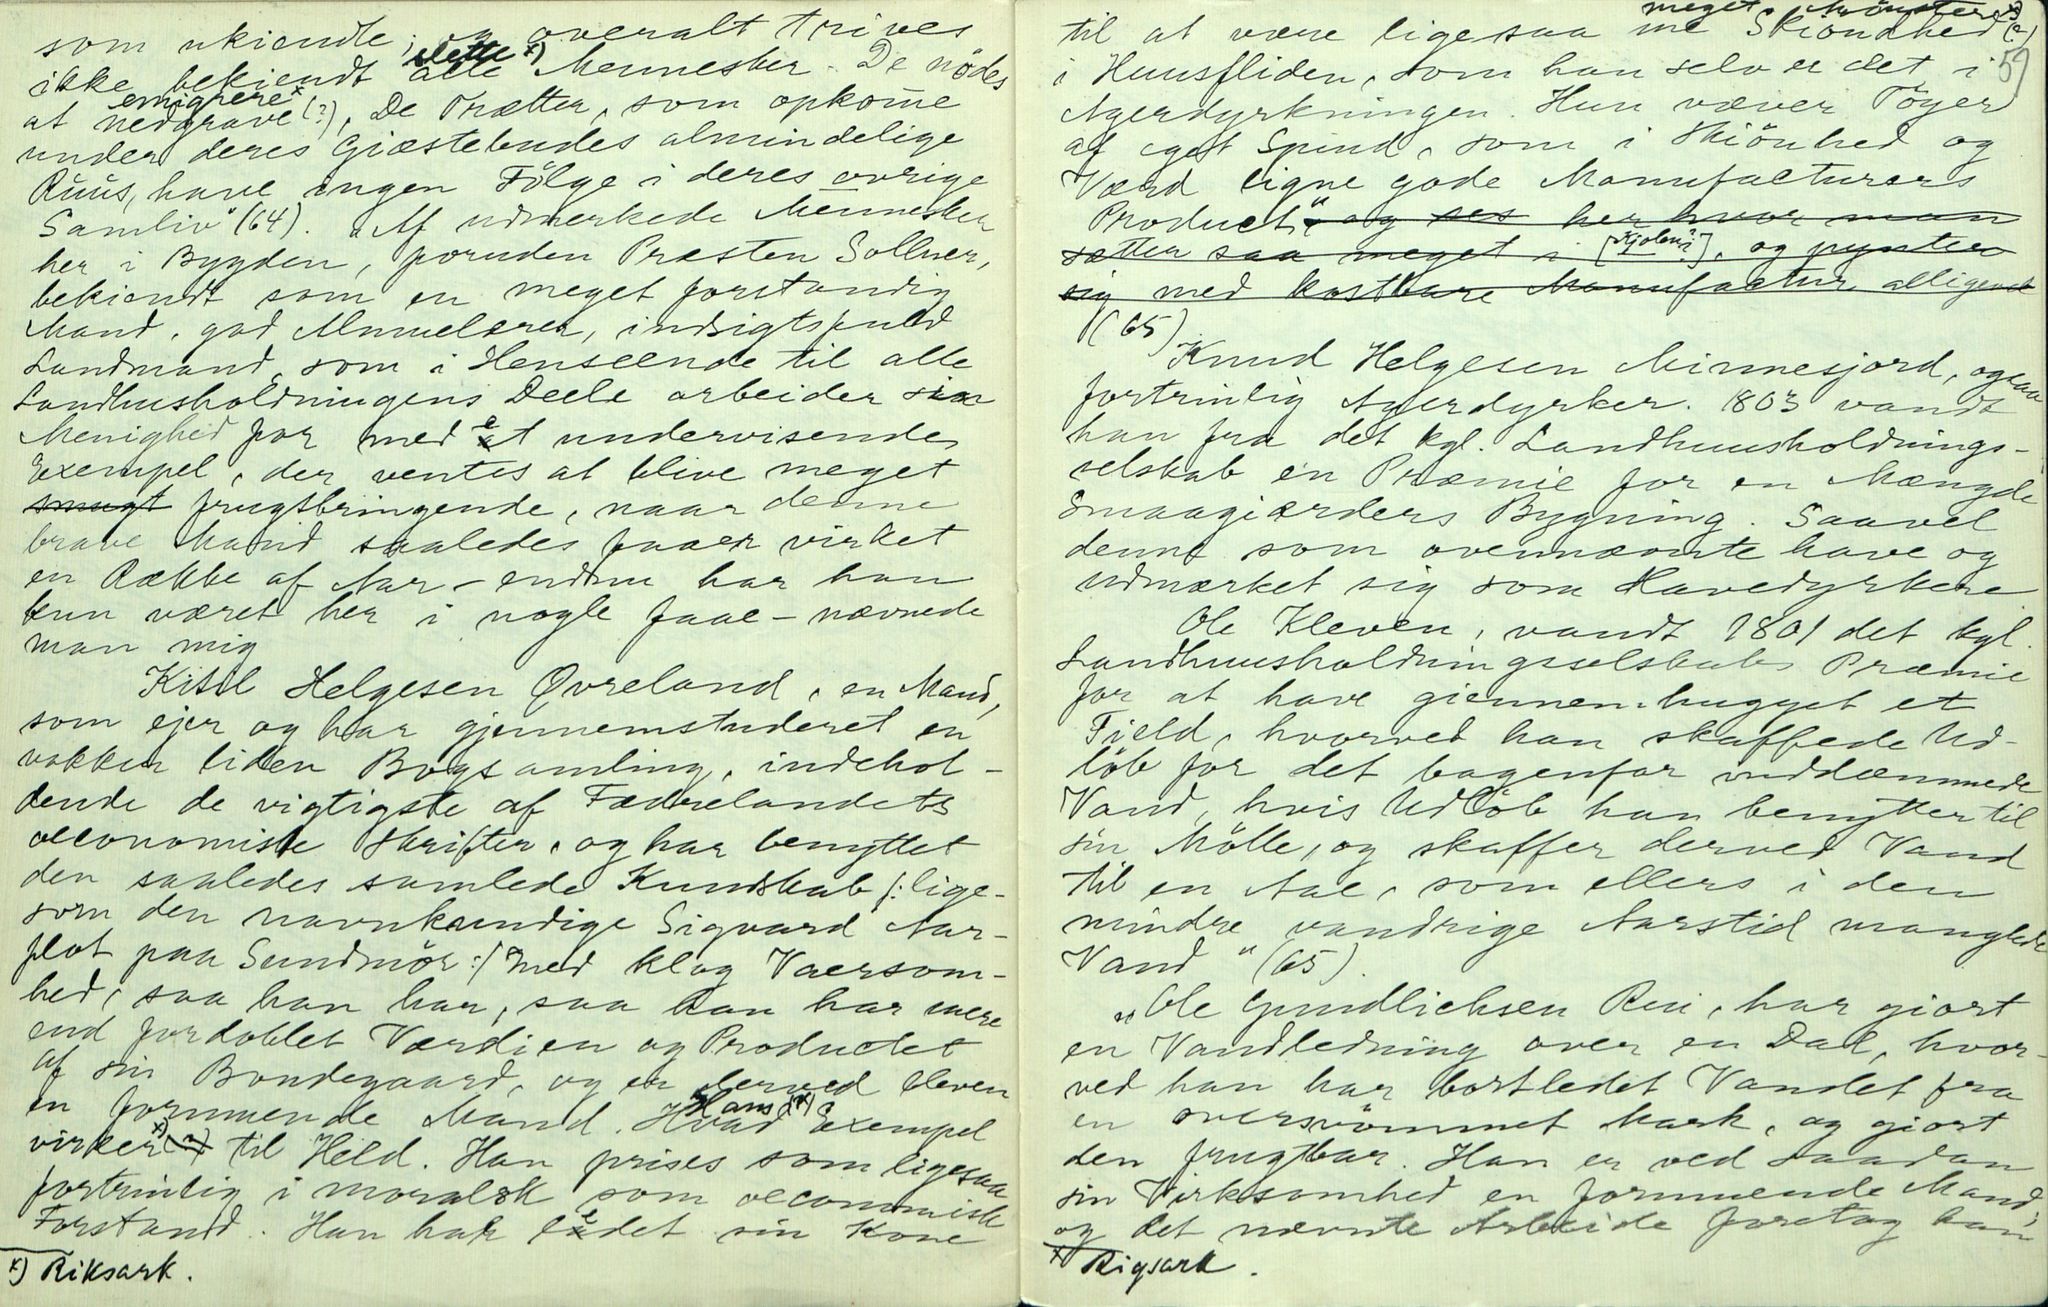 som ukiendte, og overalt trives
ikke bekiendt alle Mennesker. De nödes
dette x)
at nedgrave (?), De Trætter, som opkom̄e
emigrere x
under deres Giæstebudes almindelige
Ruus, have ingen Fölge i deres ovrige
Samliv" (64). "Af udmerkede Mennesker
her i Bygden, foruden Præsten Sollner,
bekiendt som en meget forstandig
Mand, god Almuelærer, indsigtsfuld
Landmand, som i Henseende til alle
Landhusholdningens Deele arbeider sin
Menighed for med et undervisende
Exempel, der ventes at blive meget
smugt frugtbringende, naar denne
brave Mand saaledes faaer virket
en Række af Aar – endnu har han
kun været her i nogle faae – nævnede
man mig
Kitil Helgesen Øvreland, en Mand,
som ejer og har gjennemstuderet en
vakker liden Bogsamling, indehol-
dende de vigtigste af Fædrelandets
oeconomiske Skrifter, og har benyttet
den saaledes samlede Kundskab /: lige-
som den navnkundige Sigvard Aar-
flot paa Sundmör :/ med klog Vaersom-
hed, saa han har, saa han har mere
end fordoblet Værdien og Productet
af sin Bondegaard, og er derved bleven
en formuende Mand. Hvad Exempel
Hans (x)
virker x) (?) til Held. Han prises som ligesaa
fortrinlig i moralsk som oeconomisk
Forstand. Han har ledet sin Kone
x) Riksark.
59
meget mönster x)
til at være ligesaa me Skiöndhed (?)
i Huusfliden, som han selv er det i
Agerdyrkningen. Hun væver Töyer
af eget Spind, som i Skiönhed og
Værd ligne gode Manufacturers
Product", og ses her hvor man
sætter saa meget i [Kjolen?], og pynter
sig med kostbare Manufactur alligevel
(65)
Knud Helgesen Minnesjord, ogsaa
fortrinlig Agerdyrker. 1803 vandt
han fra det kgl. Landhuusholdnings-
selskab en Præmie for en Mængde
Smaagiærders Bygning. Saavel
denne som ovennævnte have og
udmærket sig som Havedyrkere
Ole Kleven, vandt 1801 det kgl.
Landhuusholdningsselskabs Præmie
for at have giennemhugget et
Field, hvorved han skaffede Ud-
löb for det bagenfor inddæmmede
Vand, hvis Udlöb han benytter til
sin Mölle, og skaffer derved Vand
til en Aae, som ellers i den
mindre vandrige Aarstid manglede
Vand" (65).
"Ole Gundlichsen Rui, har giort
en Vandledning over en Dal, hvor-
ved han har bortledet Vandet fra
en oversvömmet Mark, og giort
den frugtbar. Han er ved saadan
sin Virksomhed en formuende Mand,
og det nævnte Arbeide foretog han
x Rigsark.